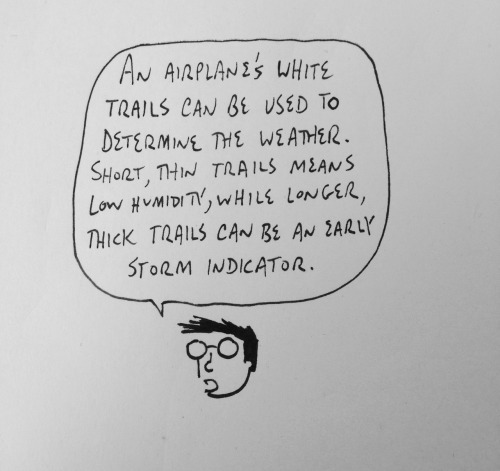 AN AIRPLANE'S WHITE
TRAILS CAN BE USED TO
DETERMINE THE WEATHER.
SHORT, THIN TRAILS MEANS
LOW HUMIDITY, WHILE LONGER,
THICK TRAILS CAN BE AN EARLY
STORM INDICATOR.